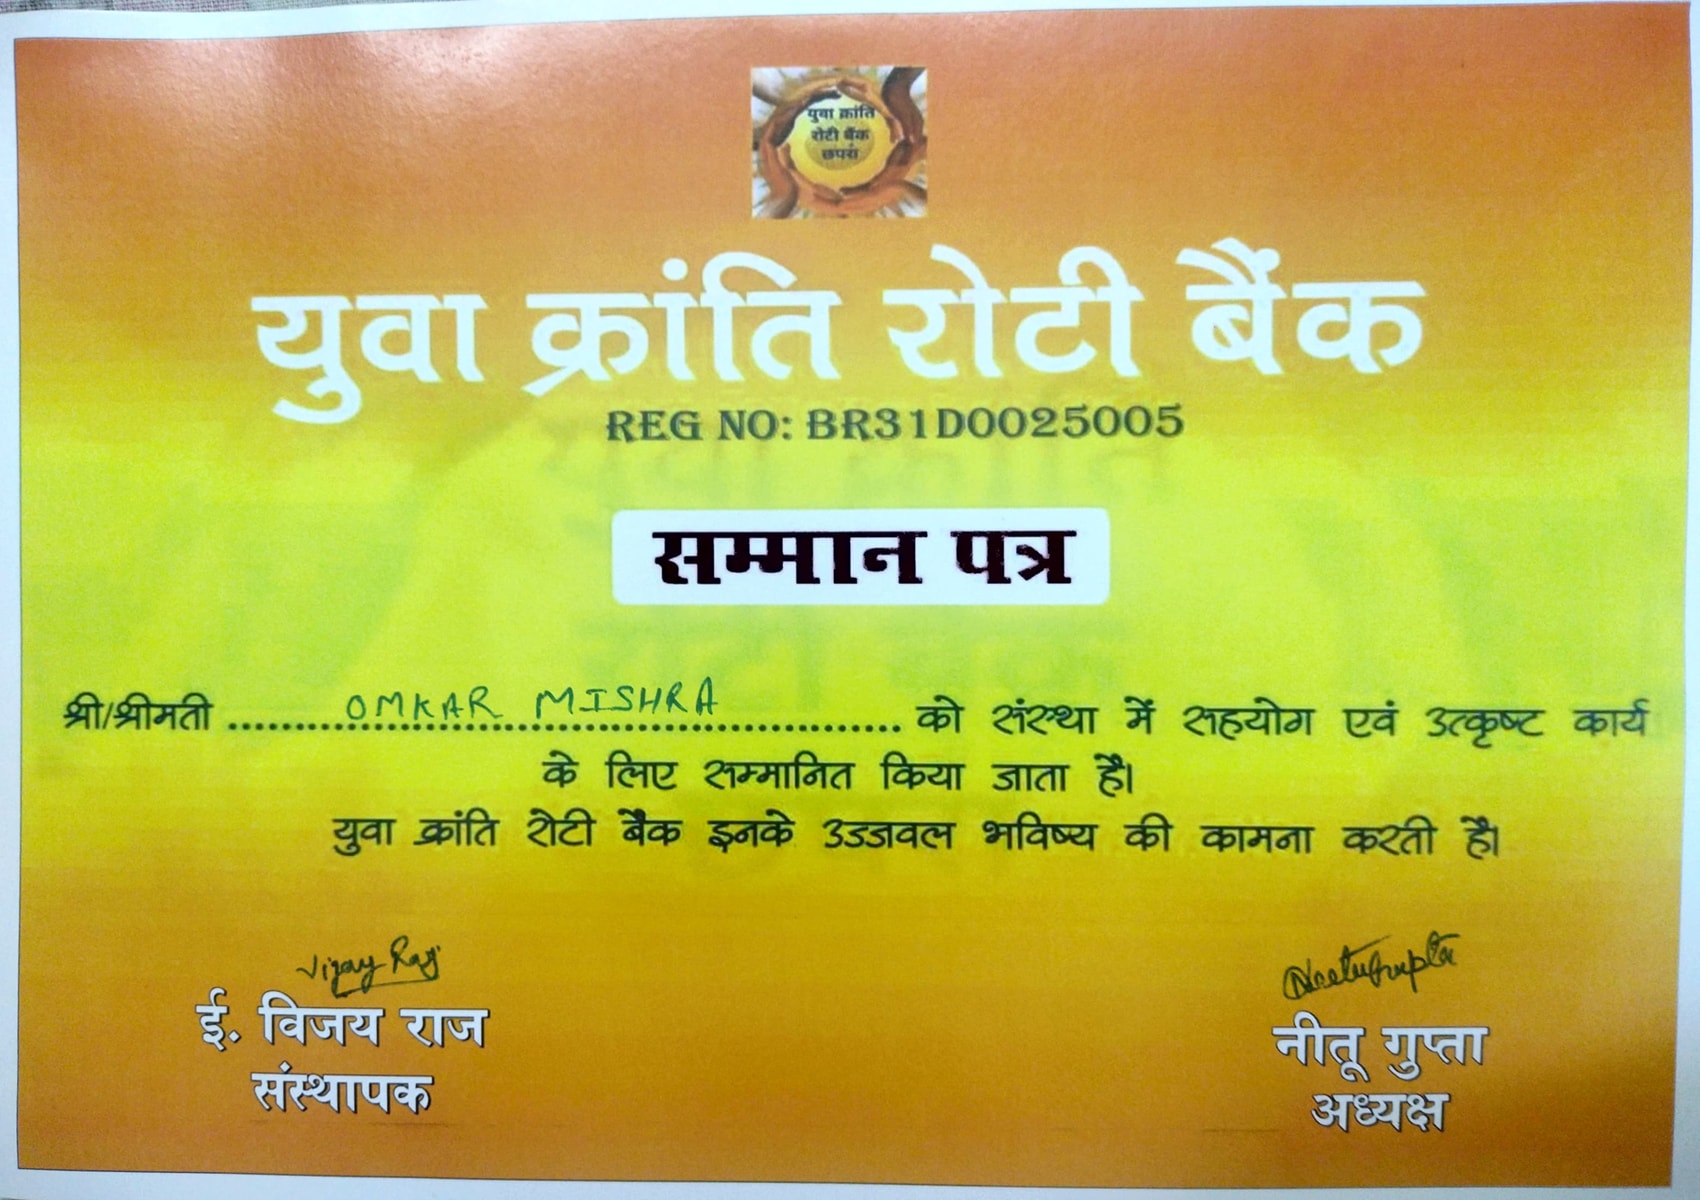 युवा क्रांति
रोटी बैंक
छपरा
युवा क्रांति रोटी बैंक
REG NO: BR31D0025005
सम्मान पत्र
श्री/श्रीमती ........OMKAR MISHRA........ को संस्था में सहयोग एवं उत्कृष्ट कार्य
के लिए सम्मानित किया जाता है।
युवा क्रांति रोटी बैंक इनके उज्जवल भविष्य की कामना करती है।
Vijay Raj
ई. विजय राज
संस्थापक
Neetu Gupta
नीतू गुप्ता
अध्यक्ष